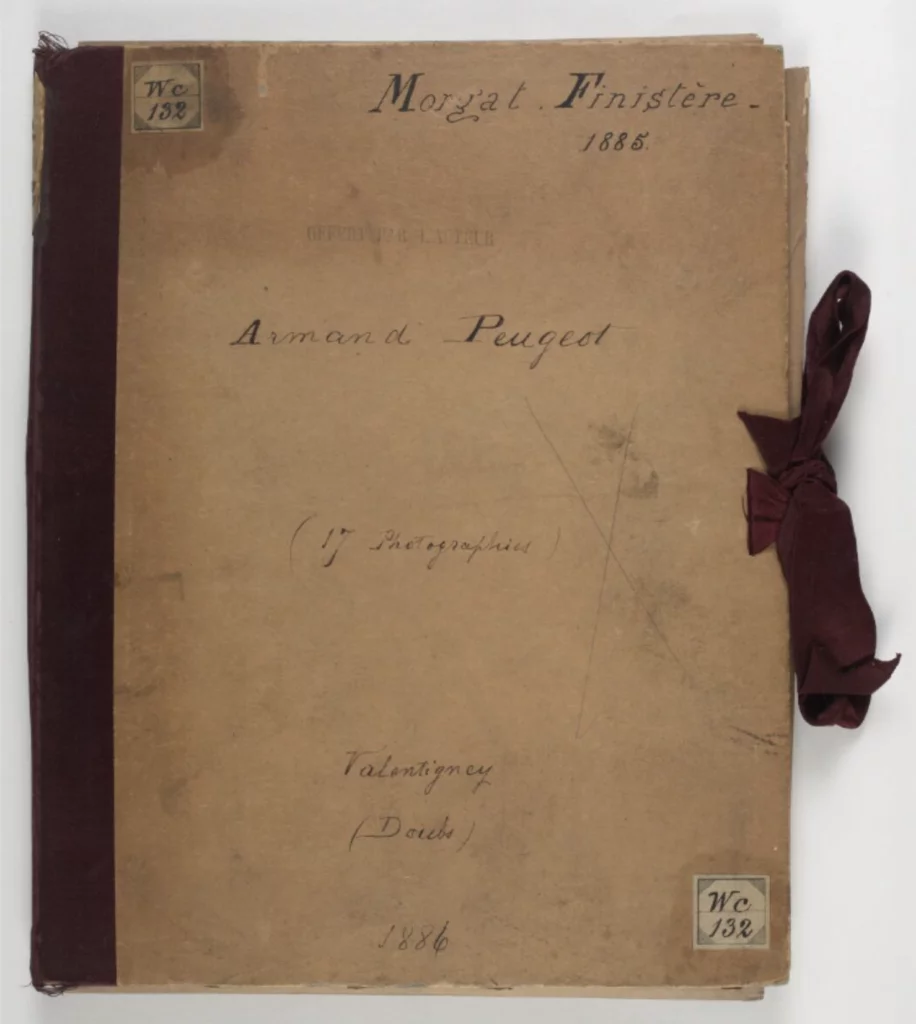 Wc
132
Morgat. Finistère -
1885.
OFFERT PAR L'AUTEUR
Armand Peugeot
(17 Photographies)
Valentigney
(Doubs)
1886
Wc
132